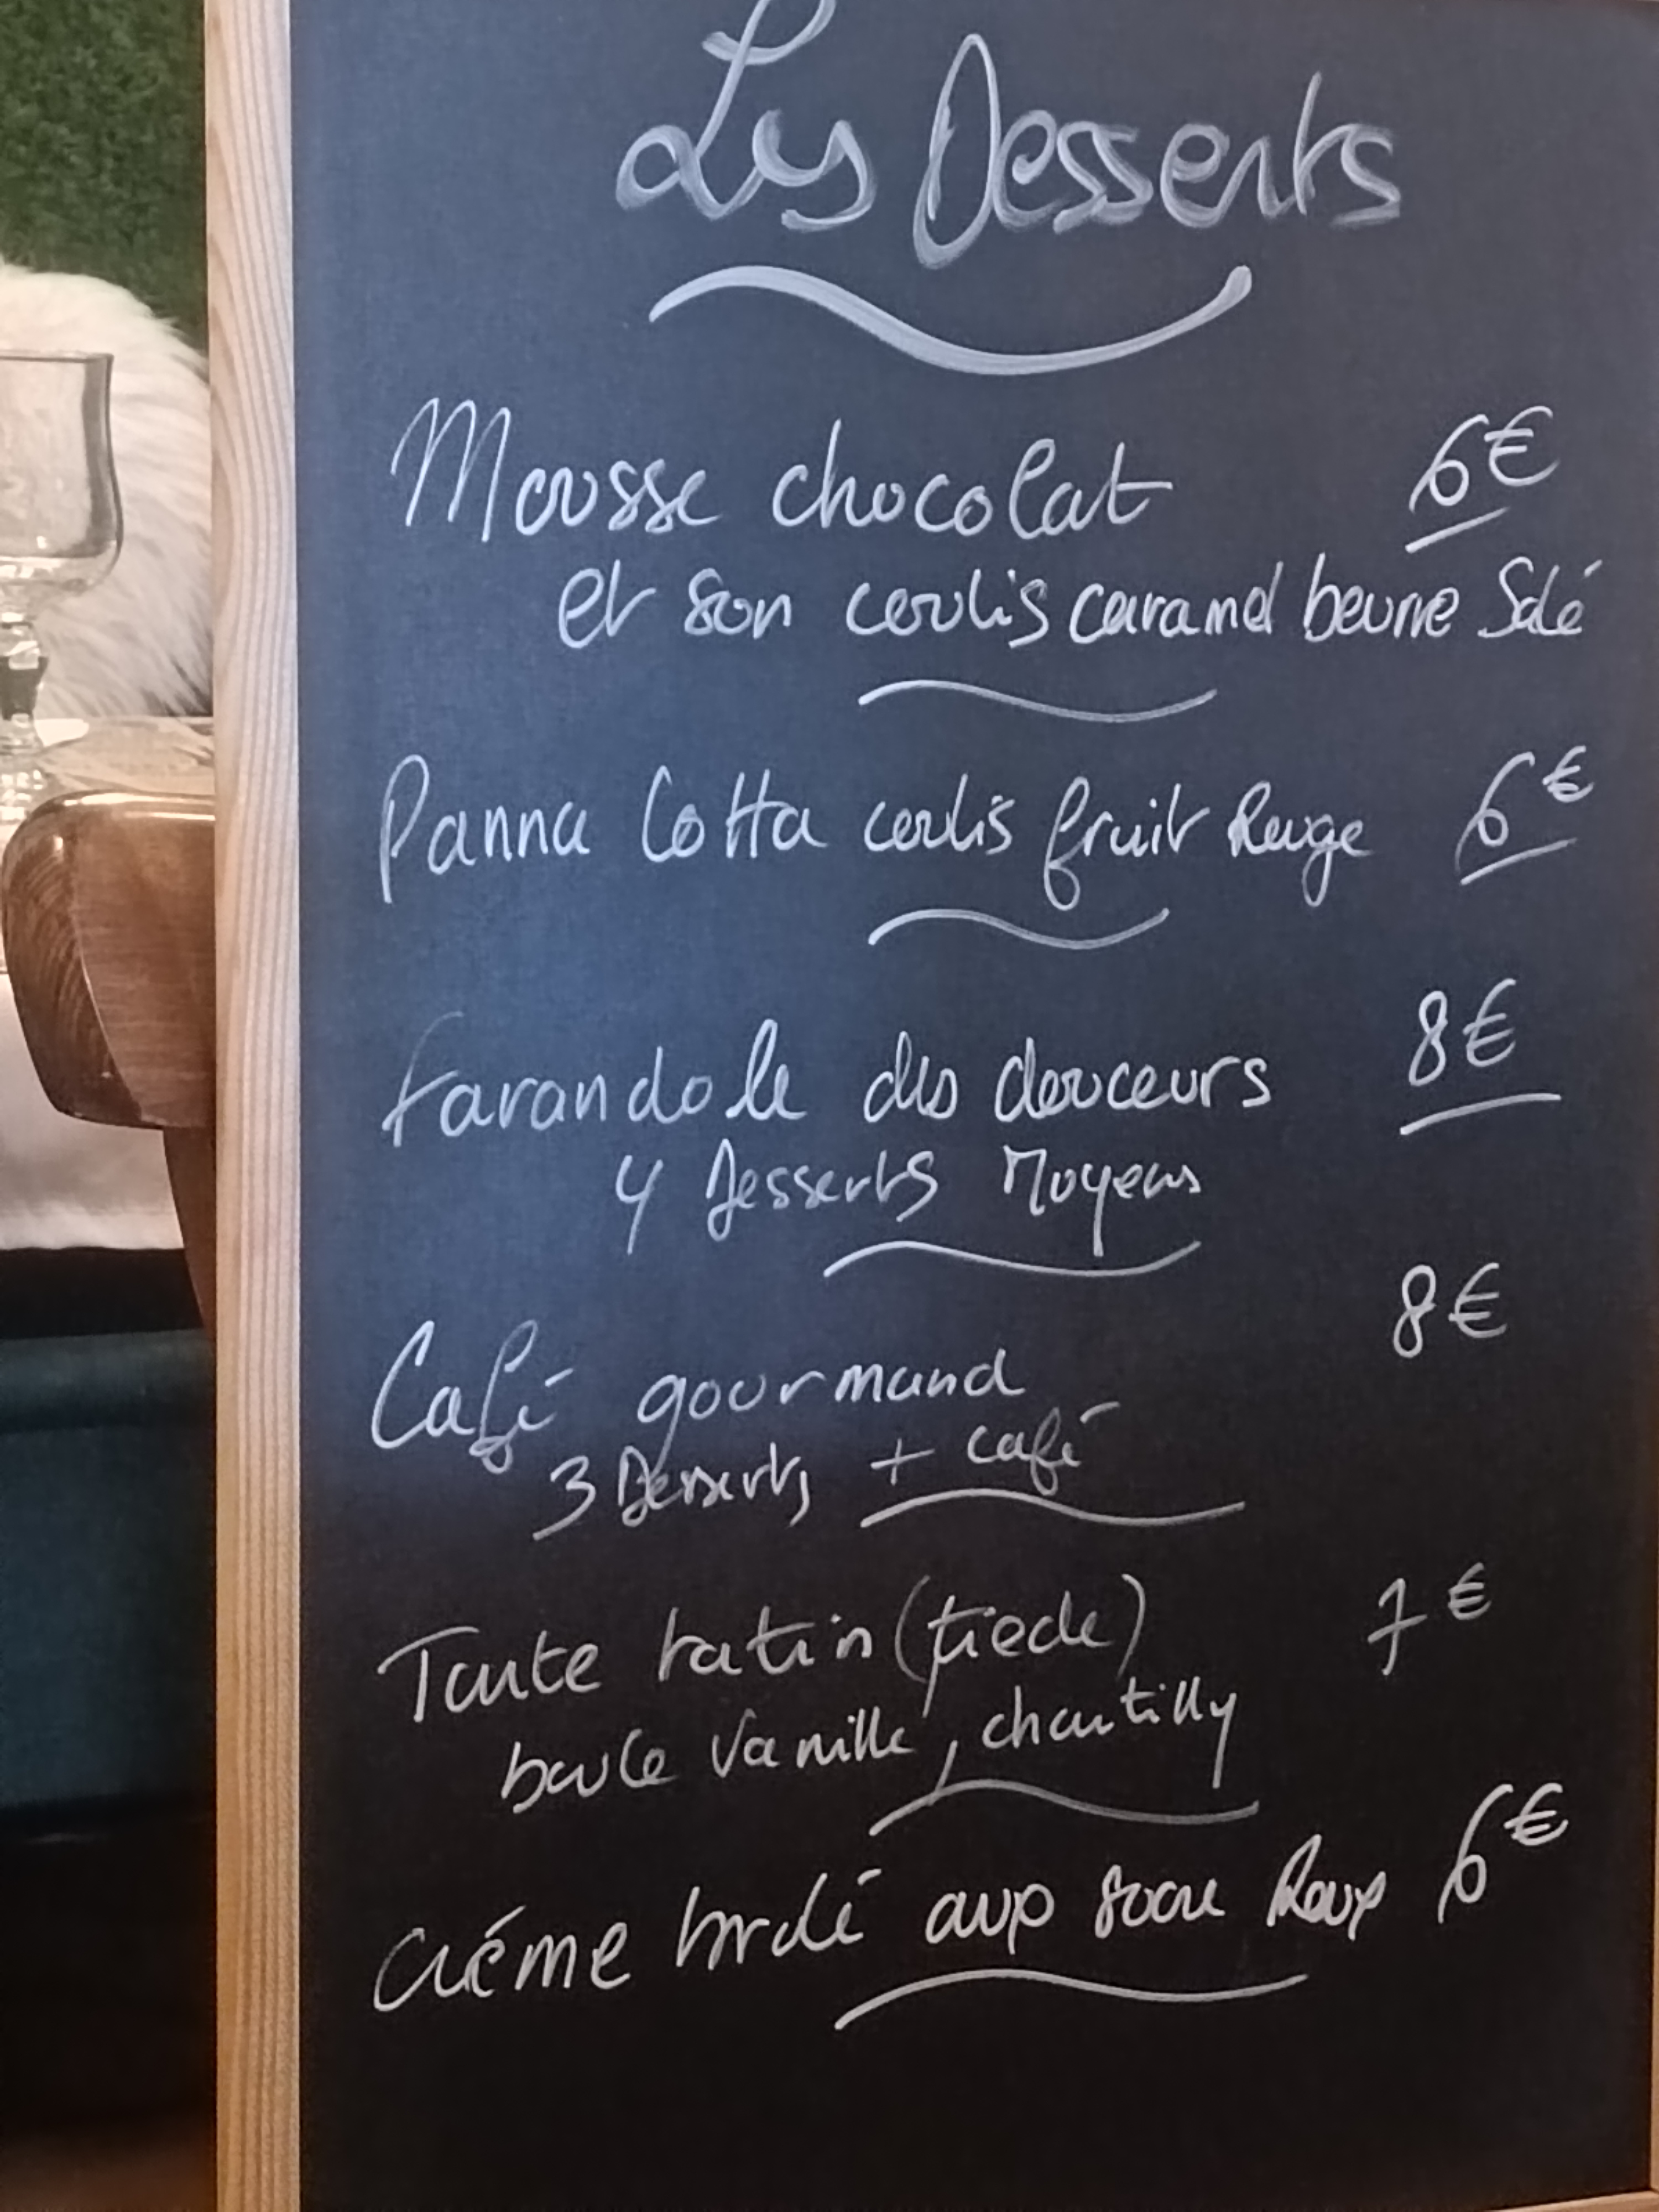 Les Desserts
Mousse chocolat 6€
et son coulis caramel beurre Salé
Panna Cotta coulis fruit Rouge 6€
Farandole des douceurs 8€
4 Desserts Moyens
Café gourmand 8€
3 Desserts + café
Tarte tatin (tiede) 7€
boule Vanille, chantilly
Créme brulé aux sucre Roux 6€